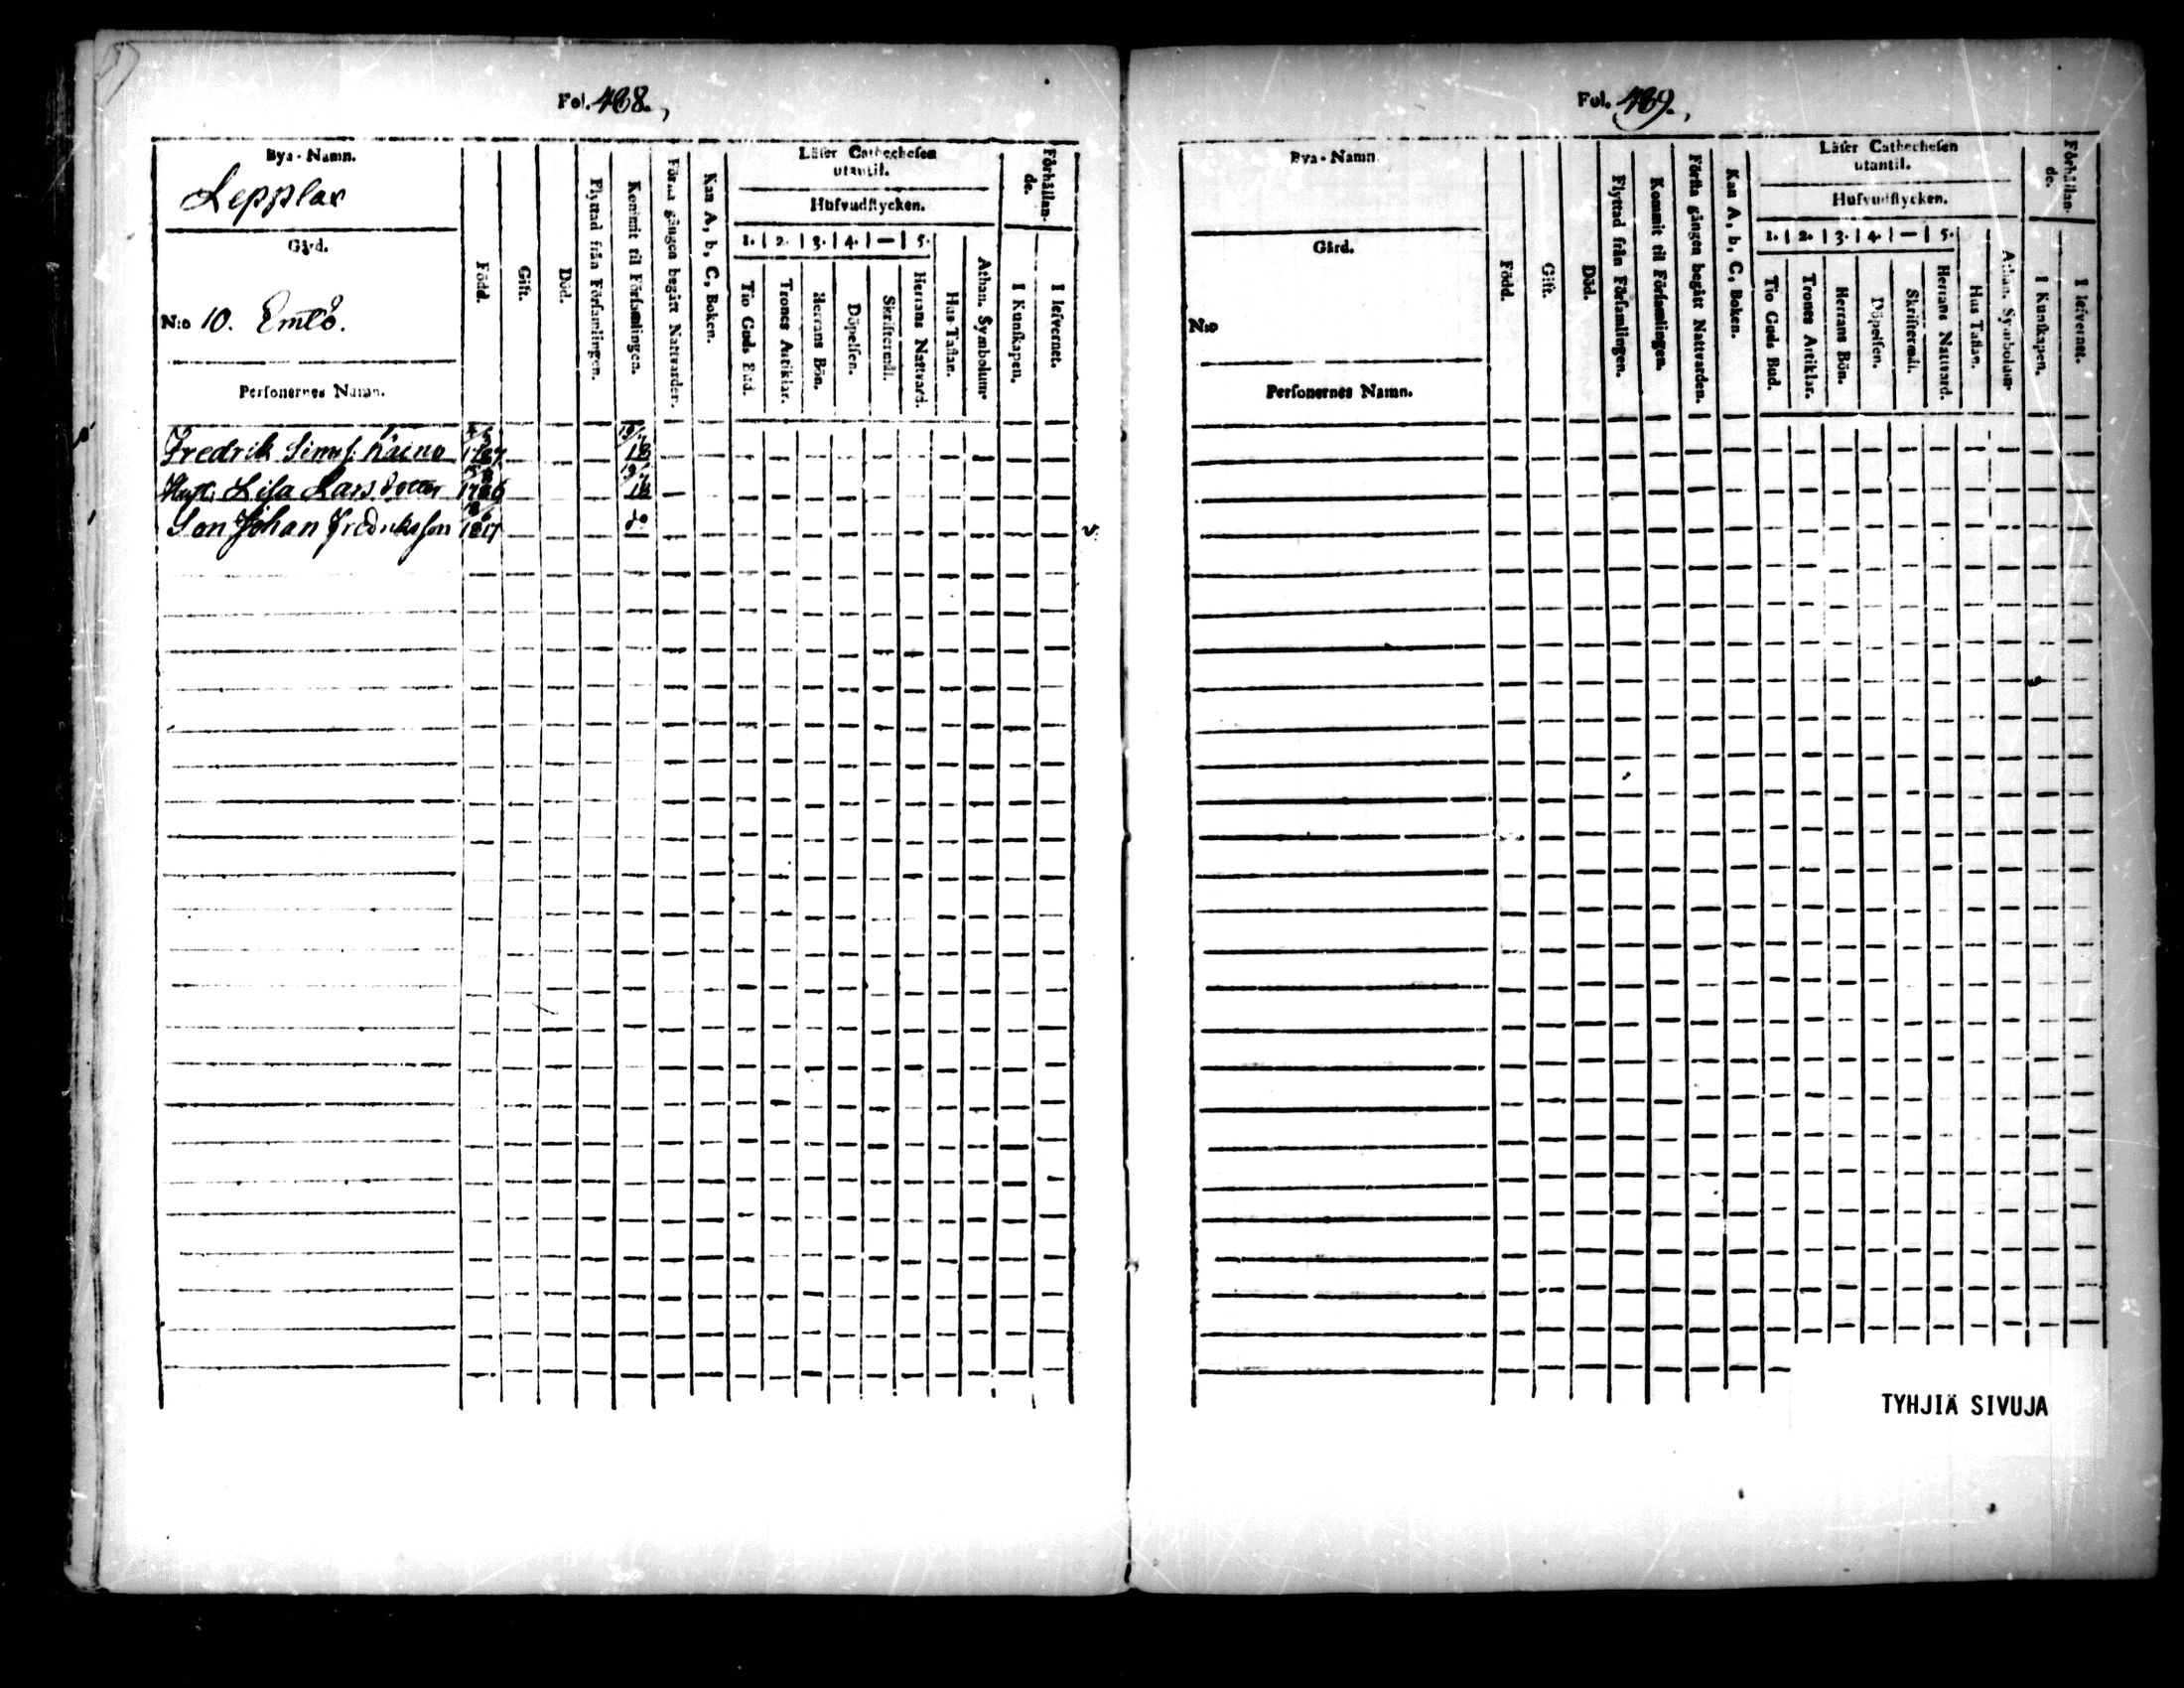 Fol. 438.
Bya-Namn.
Lepplax
Gård.
N:o 10. Emlö.
Personernes Namn.
Född.
Gift.
Död.
Flyttad från Församlingen.
Kommit til Församlingen.
Första gången begått Nattvarden.
Kan A, b, C, Boken.
Läser Cathechesen utantil.
Hufvudstycken.
1. 2. 3. 4. — 5.
Tio Guds Bud.
Trones Artiklar.
Herrans Bön.
Döpelsen.
Skriftermål.
Herrans Nattvard.
Hus Taflan.
Athan. Symbolum
Förhållande.
I Kunskapen.
I lefvernet.
Fredrik Simss.
Hust. Lisa Larsdotter 1786
Son Johan Fredriksson 1817 do
Fol. 439.
Bya-Namn
Gård.
N:o
Personernes Namn.
Född.
Gift.
Död.
Flyttad från Församlingen.
Kommit til Församlingen.
Första gången begått Nattvarden.
Kan A, b, C, Boken.
Läser Cathechesen utantil.
Hufvudstycken.
1. 2. 3. 4. — 5.
Tio Guds Bud.
Trones Artiklar.
Herrans Bön.
Döpelsen.
Skriftermål.
Herrans Nattvard.
Hus Taflan.
Athan. Symbolum
Förhållande.
I Kunskapen.
I lefvernet.
TYHJIÄ SIVUJA